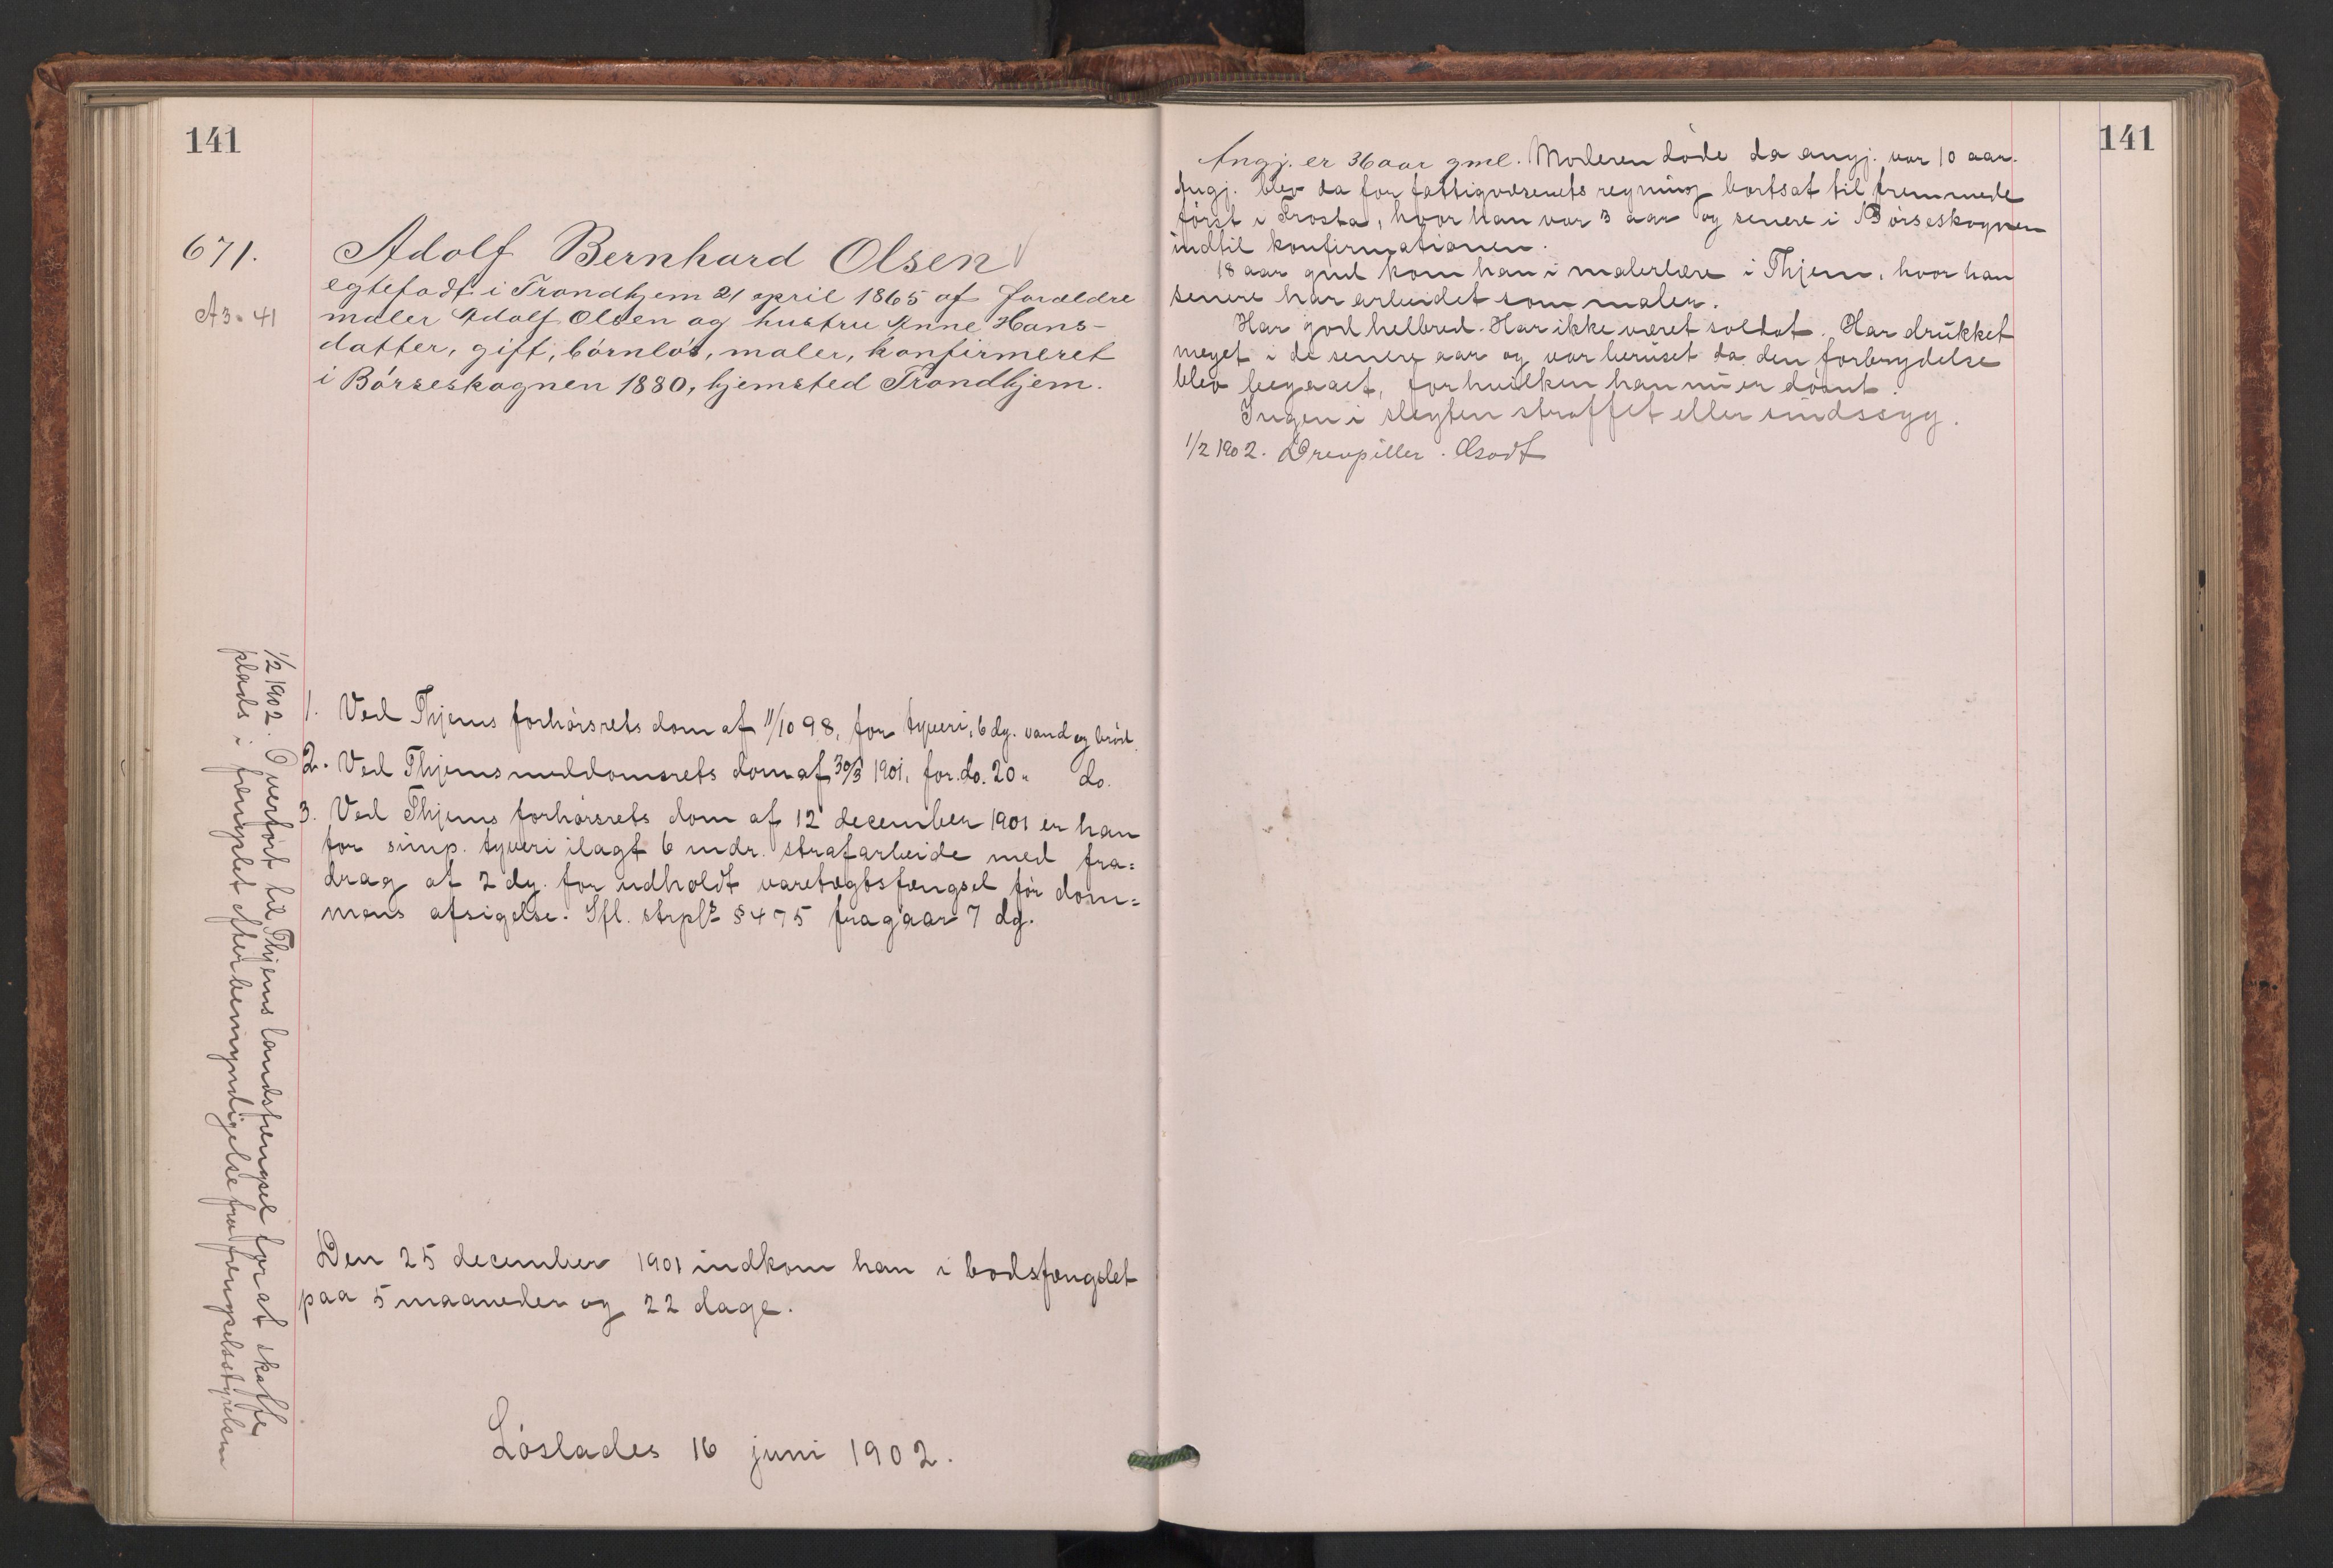 141
671.
A3-41
Adolf Bernhard Olsen
egtefødt i Trondhjem 21 april 1865 af forældre
maler Adolf Olsen og hustru Anne Hans-
datter, gift, børnløs, maler, konfirmeret
i Børseskognen 1880, hjemsted Trondhjem.
1. Ved Thjems forhørsrets dom af 11/10 98, for tyveri, 6 dg. vand og brød.
2. Ved Thjems meddomsrets dom af 30/3 1901, for do. 20 " do.
3. Ved Thjems forhørsrets dom af 12 december 1901 er han
for simp. tyveri ilagt 6 mdr. strafarbeide med fra=
drag af 2 dg. for udholdt varetægtsfængsel før dom=
mens afsigelse. Ifl. strpl § 475 fragaar 7 dg.
Den 25 december 1901 indkom han i bodsfængslet
paa 5 maaneder og 22 dage.
Løslades 16 juni 1902.
1/2 1902. Overført til Thjems landsfængsel for at skaffe
plads i fængslet efter bemyndigelse fra fængselsstyrelsen
141
Angj. er 36 aar gml. Moderen døde da angj. var 10 aar.
Angj. blev da for fattigvæsenets regning bortsat til fremmede
først i Frosta, hvor han var 3 aar og senere i Børseskognen
indtil konfirmationen.
18 aar gml kom han i malerlære i Thjem, hvor han
senere har arbeidet som maler.
Har god helbred. Har ikke været soldat. Har drukket
meget i de senere aar og var beruset da den forbrydelse
blev begaaet, for hvilken han nu er dømt.
Ingen i slegten straffet eller sindssyg.
1/2 1902. Drevpiller. Godt